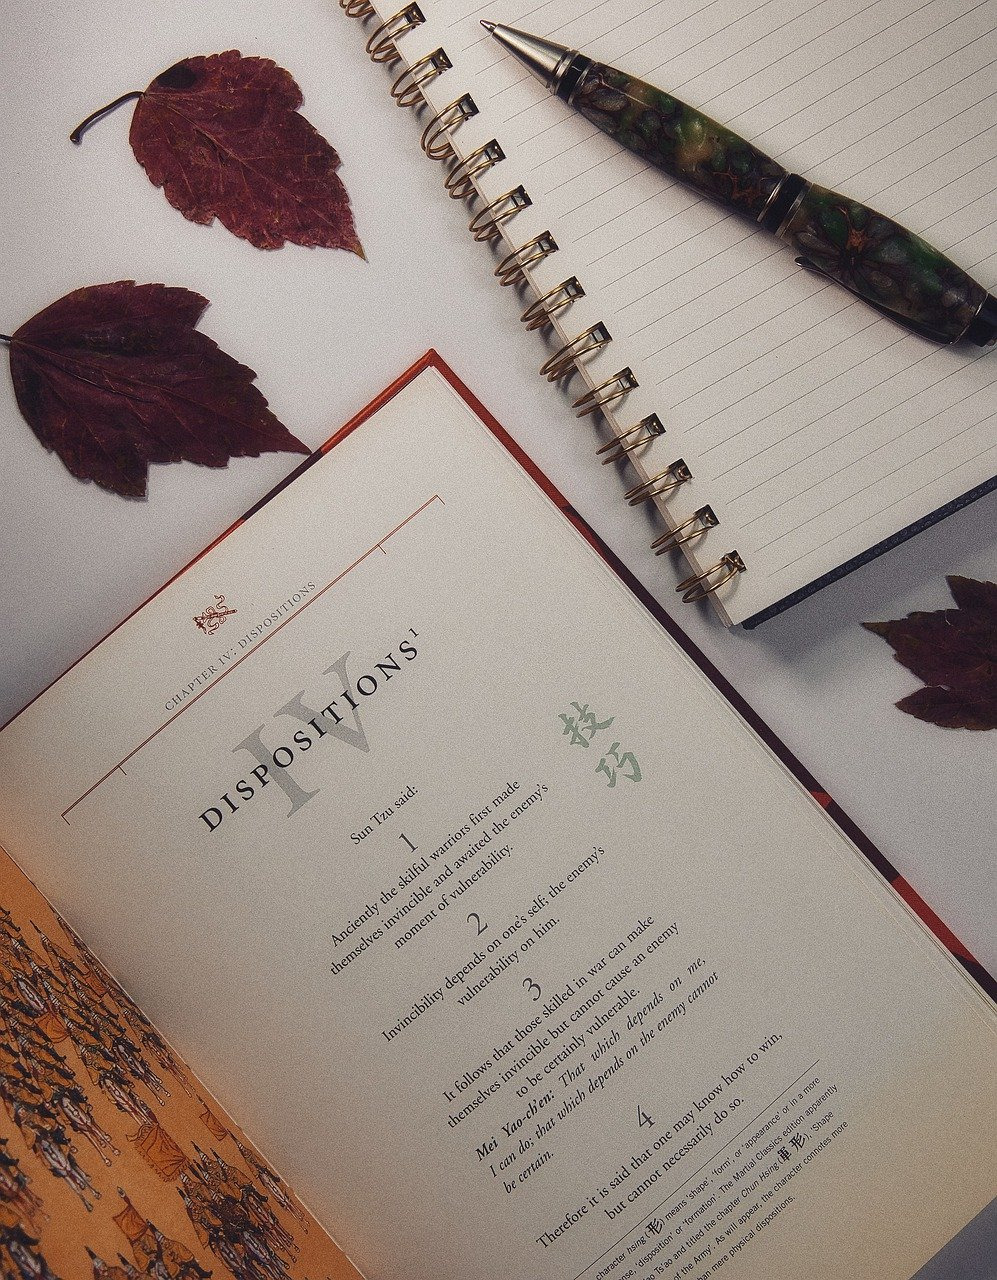 CHAPTER IV: DISPOSITIONS
IV
DISPOSITIONS¹
技
巧
Sun Tzu said:
1
Anciently the skilful warriors first made
themselves invincible and awaited the enemy's
moment of vulnerability.
2
Invincibility depends on one's self; the enemy's
vulnerability on him.
3
It follows that those skilled in war can make
themselves invincible but cannot cause an enemy
to be certainly vulnerable.
Mei Yao-ch'en: That which depends on me,
I can do; that which depends on the enemy cannot
be certain.
4
Therefore it is said that one may know how to win,
but cannot necessarily do so.
character hsing (形) means 'shape', 'form', or 'appearance' or in a more
'disposition' or 'formation'. The Martial Classics edition apparently
Ts'ao and titled the chapter Chun Hsing (軍形), 'Shape
of the Army'. As will appear, the character connotes more
than mere physical dispositions.